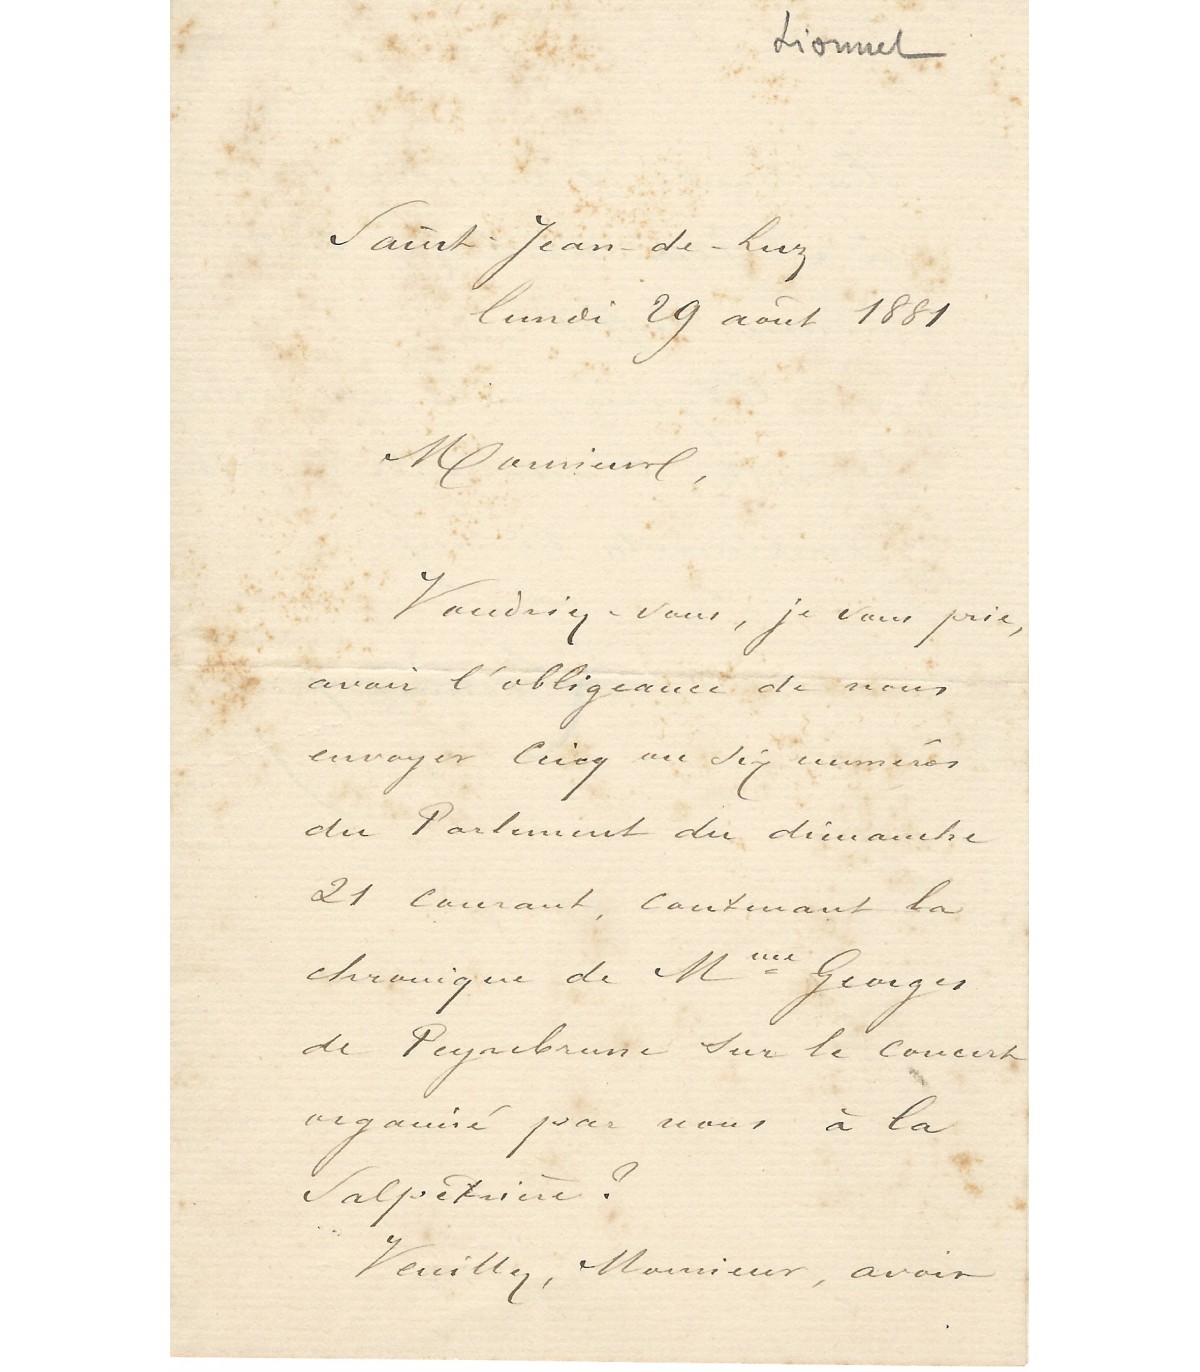 Lionnel
Saint-Jean-de-Luz
lundi 29 août 1881
Monsieur,
Voudriez-vous, je vous prie,
avoir l'obligeance de nous
envoyer cinq ou six numéros
du Parlement du dimanche
21 courant, contenant la
chronique de Mme Georges
de Peyrebrune sur le concert
organisé par nous à la
Salpêtrière?
Veuillez, Monsieur, avoir